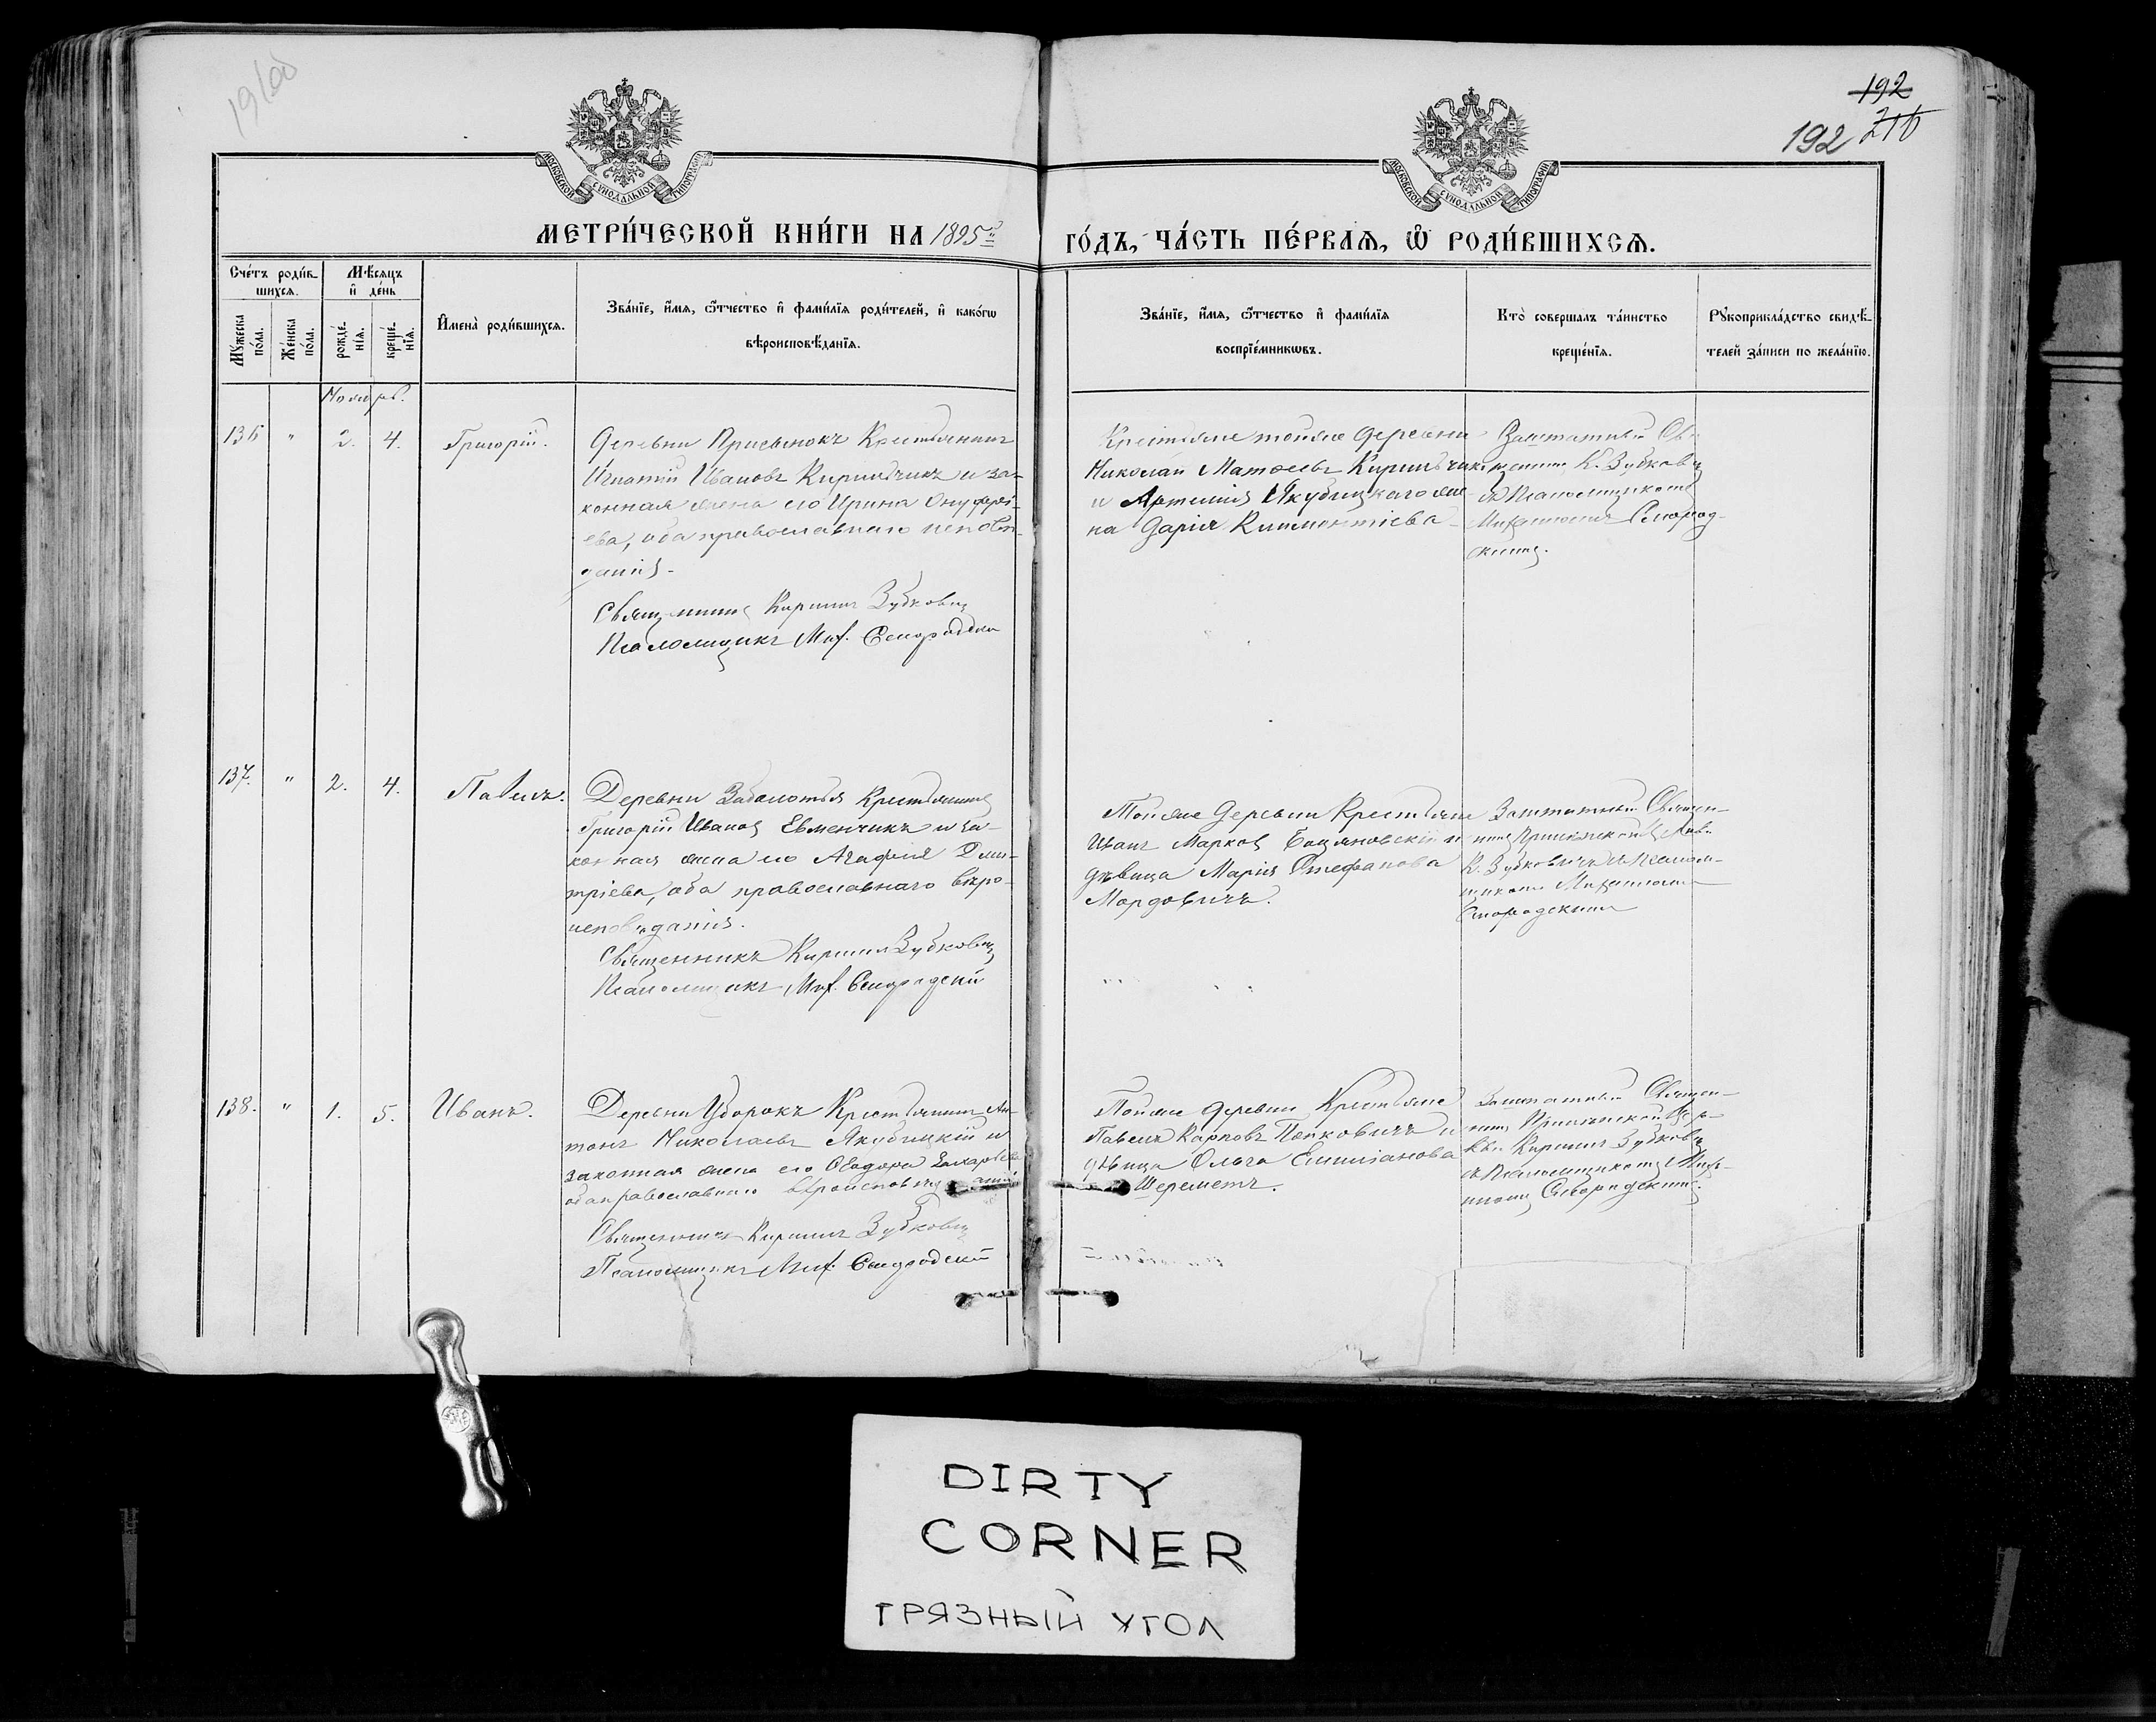 192
216
192
МОСКОВСКОЙ СѴНОДАЛЬНОЙ ТИПОГРАФІИ
МОСКОВСКОЙ СѴНОДАЛЬНОЙ ТИПОГРАФІИ
МЕТРИ́ЧЕСКОЙ КНИ́ГИ НА 1895й
ГО́ДЪ, ЧА́СТЬ ПЕ́РВАѦ, Ѽ РОДИ́ВШИХСѦ.
Сче́тъ роди́в-
шихсѧ.
Мꙋ́жеска по́ла.
Же́нска по́ла.
Мѣ́сѧцъ
и҆ де́нь
рожде́-
нїѧ.
креще́-
нїѧ.
И҆мена̀ роди́вшихсѧ.
Зва́нїе, и҆́мѧ, ѻ҆́тчество и҆ фами́лїѧ роди́телей, и҆ како́гѡ
вѣроисповѣ́данїѧ.
Зва́нїе, и҆́мѧ, ѻ҆́тчество и҆ фами́лїѧ
воспрїе́мникѡвъ.
Кто̀ соверша́лъ та́инство
креще́нїѧ.
Рꙋкоприкла́дство свидѣ́-
телей за́писи по жела́нїю.
Ноября.
136 " 2. 4. Григорій.
Деревни Присынокъ Крестьянинъ
Игнатій Ивановъ Кирильчикъ и за-
конная жена его Ирина Онуфрі-
ева, оба православнаго исповѣ-
данія.
Священникъ Кириллъ Зубковичъ
Псаломщикъ Миф. Смородскій
Крестьяне тойже деревни
Николай Матѳеевъ Кирильчикъ
и Артемія Якубицкаго же-
на Дарія Климентіева
Заштатный Свя-
щенникъ К. Зубковичъ
съ Псаломщикомъ
Смород-
скимъ.
137. " 2. 4. Павелъ.
Деревни Заболотья Крестьянинъ
Григорій Ивановъ Евменчикъ и за-
конная жена его Агафія Дми-
тріева, оба православнаго вѣро-
исповѣданія.
Священникъ Кириллъ Зубковичъ
Псаломщикъ Миф. Смородскій
Тойже деревни Крестьяне
Иванъ Марковъ и
дѣвица Марія Стефанова
Мордовичъ.
Заштатный Священ-
К. Зубковичъ съ Псалом-
щикомъ
Смородскимъ
138. " 1. 5. Иванъ.
Деревни Уборокъ Крестьянинъ Ан-
тонъ Николаевъ Якубицкій и
законная жена его Ѳеодора Захарьева
оба православнаго вѣроисповѣданія
Священникъ Кириллъ Зубковичъ
Псаломщикъ Миф. Смородскій
Тойже деревни Крестьяне
Павелъ Карповъ Попковичъ и
дѣвица Ольга Емиліанова
Шереметъ.
Заштатный Священ-
Кириллъ Зубковичъ
съ Псаломщикомъ Миф-
Смородскимъ.
DIRTY
CORNER
ГРЯЗНЫЙ УГОЛ